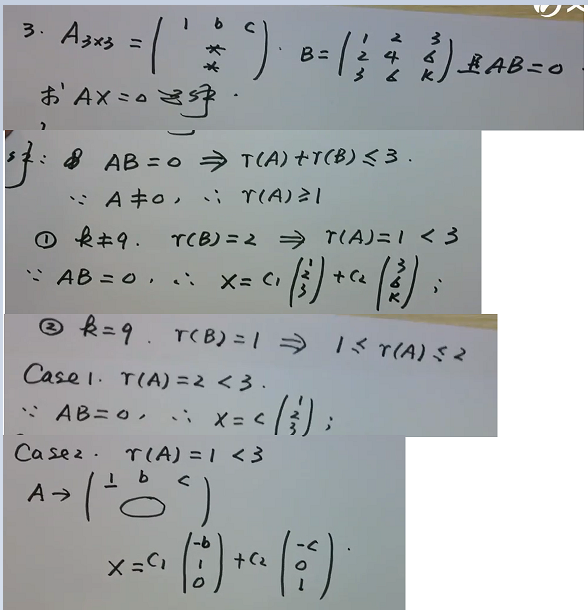 3. A₃ₓ₃ = ( 1 b c ; * ; * ). B = ( 1 2 3 ; 2 4 6 ; 3 6 k ) 且AB=0.
求AX=0之解.
解: AB=0 ⇒ r(A)+r(B)≤3.
∵ A≠0, ∴ r(A)≥1
① k≠9. r(B)=2 ⇒ r(A)=1<3
∵ AB=0, ∴ X=C₁ ( 1 ; 2 ; 3 ) +C₂ ( 3 ; 6 ; k ) ;
② k=9. r(B)=1 ⇒ 1≤r(A)≤2
Case1. r(A)=2<3.
∵ AB=0, ∴ X=C ( 1 ; 2 ; 3 ) ;
Case2. r(A)=1<3
A→ ( 1 b c ; O )
X=C₁ ( -b ; 1 ; 0 ) +C₂ ( -c ; 0 ; 1 ) .